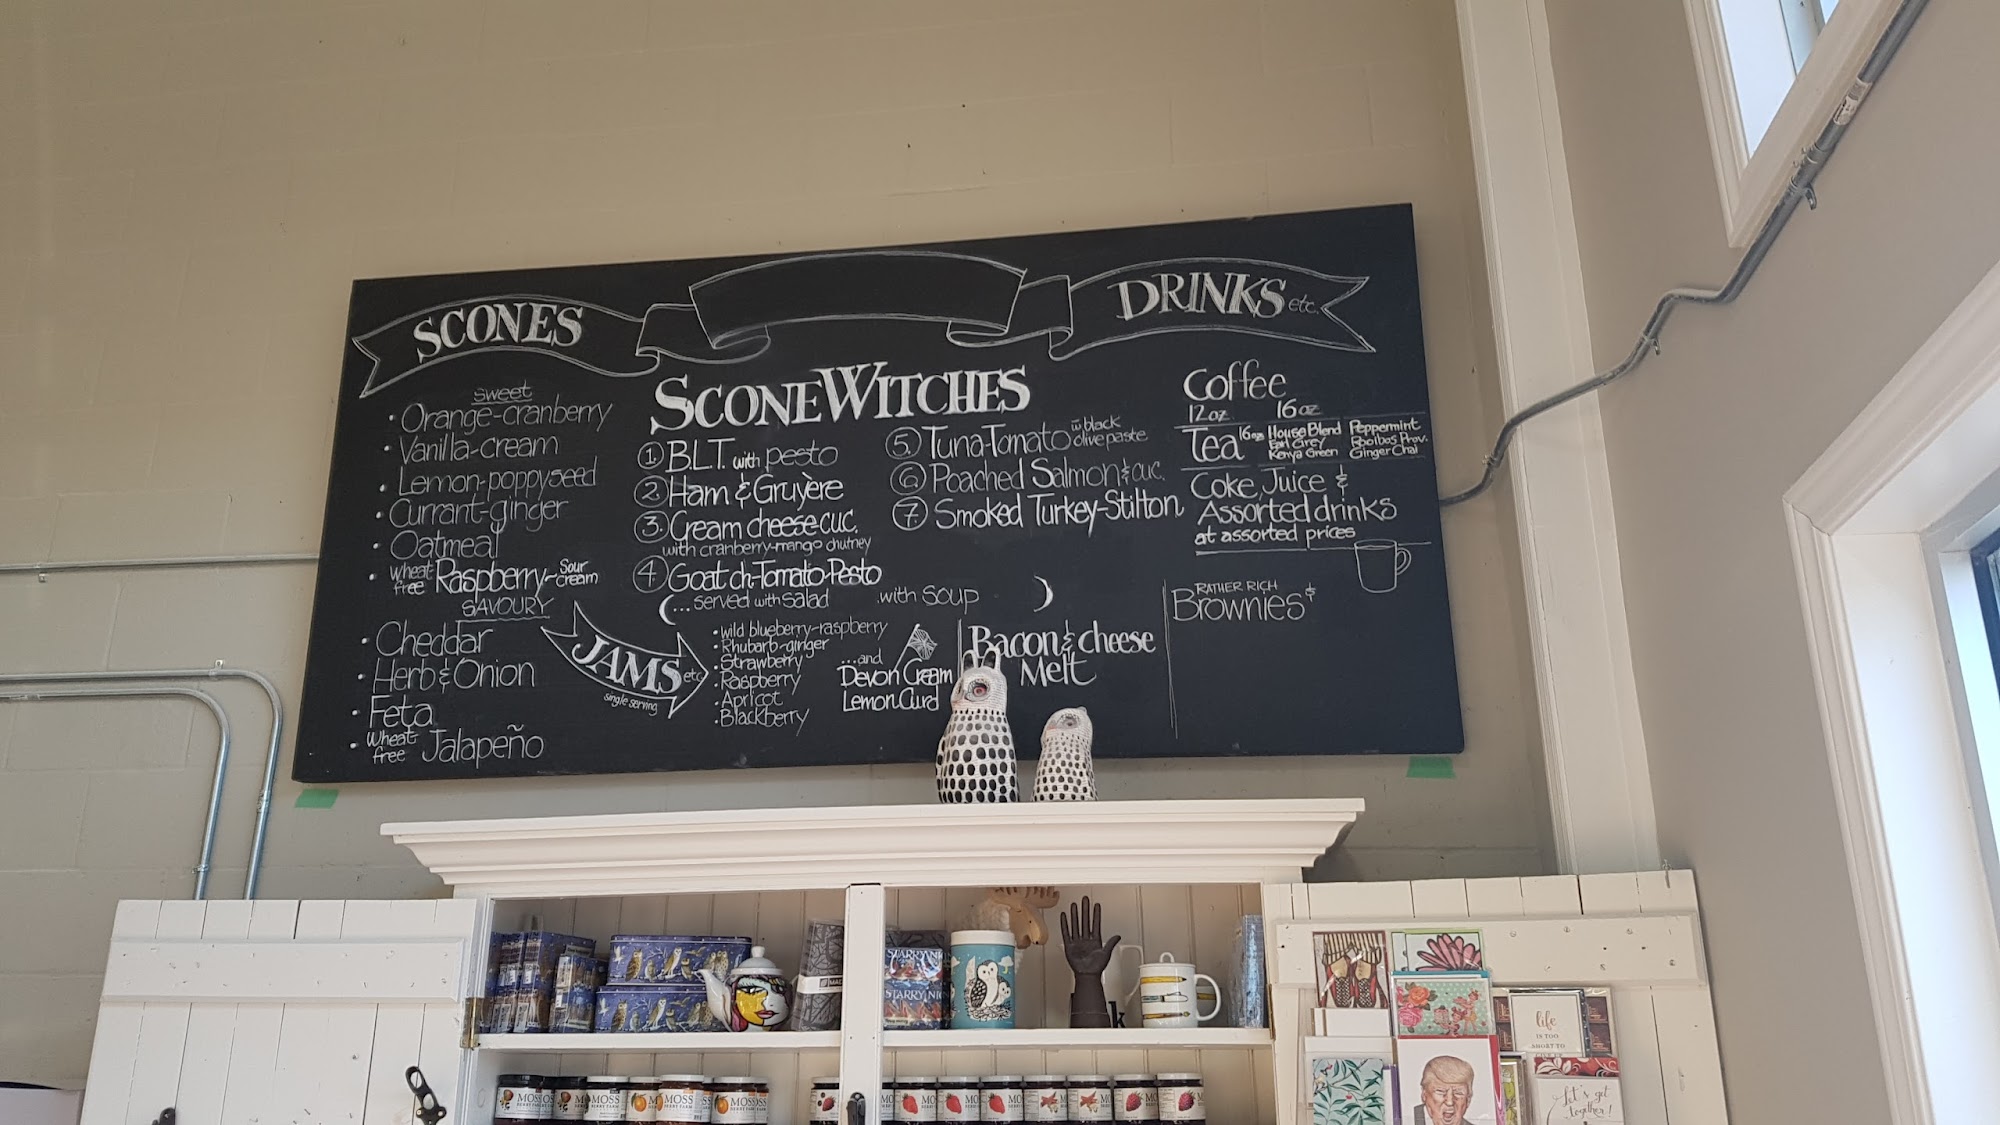 SCONES
sweet
• Orange-cranberry
• Vanilla-cream
• Lemon-poppyseed
• Currant-ginger
• Oatmeal
• wheat free Raspberry-sour cream
SAVOURY
• Cheddar
• Herb & Onion
• Feta
• wheat free Jalapeño
SCONEWITCHES
1. B.L.T. with pesto
2. Ham & Gruyère
3. Cream cheese-cuc.
with cranberry-mango chutney
4. Goat ch-Tomato-Pesto
5. Tuna-Tomato w black olive paste
6. Poached Salmon & cuc.
7. Smoked Turkey-Stilton
(... served with salad with soup )
JAMS etc
single serving
• wild blueberry-raspberry
• Rhubarb-ginger
• Strawberry
• Raspberry
• Apricot
• Blackberry
...and
Devon Cream
Lemon Curd
Bacon & cheese
Melt
DRINKS etc.
Coffee
12oz 16oz
Tea 16oz
House Blend
Earl Grey
Kenya Green
Peppermint
Rooibos Prov.
Ginger Chai
Coke, Juice &
Assorted drinks
at assorted prices
RATHER RICH
Brownies &
STARRY NI
STARRY NI
k
life
IS TOO
SHORT TO
Let's get
together!
MOSS
BERRY FARM
MOSS
BERRY FARM
MOSS
BERRY FARM
MOSS
BERRY FARM